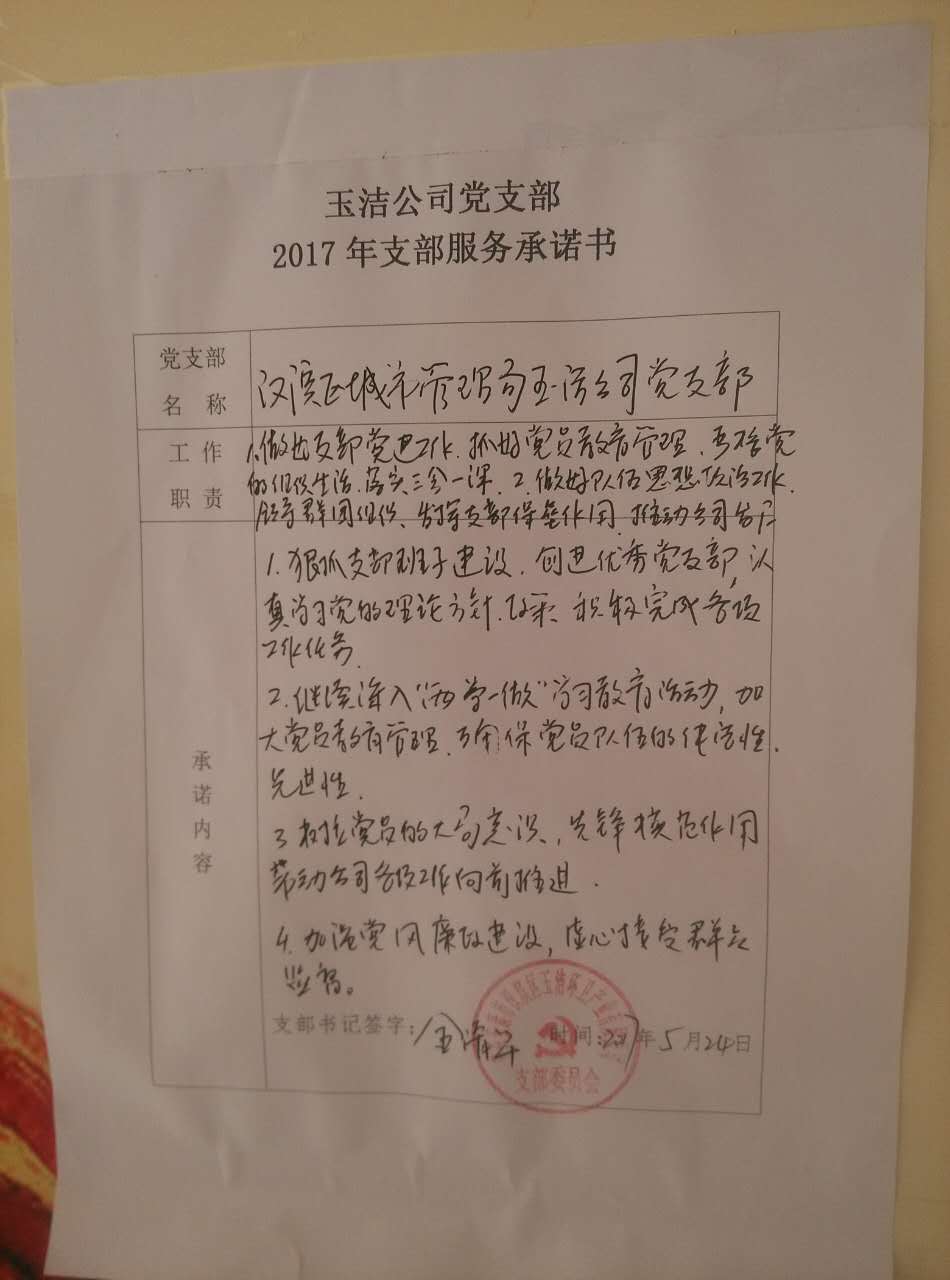 玉洁公司党支部
2017年支部服务承诺书
党支部
名 称
汉滨区城市管理局玉洁公司党支部
工 作
职 责
1.做好支部党建工作.抓好党员教育管理.严格党
的组织生活.落实三会一课.2.做好队伍思想政治工作.
领导群团组织、发挥支部保垒作用.推动公司发展
承诺内容
1.狠抓支部班子建设.创建优秀党支部,认
真学习党的理论方针.政策.积极完成各项
工作任务.
2.继续深入"两学一做"学习教育活动,加
大党员教育管理.确保党员队伍的
先进性.
3.树立党员的大局意识,先锋模范作用
带动公司各项工作向前推进.
4.加强党风廉政建设,虚心接受群众
监督。
支部书记签字:
时间:2017年5月24日
支部委员会